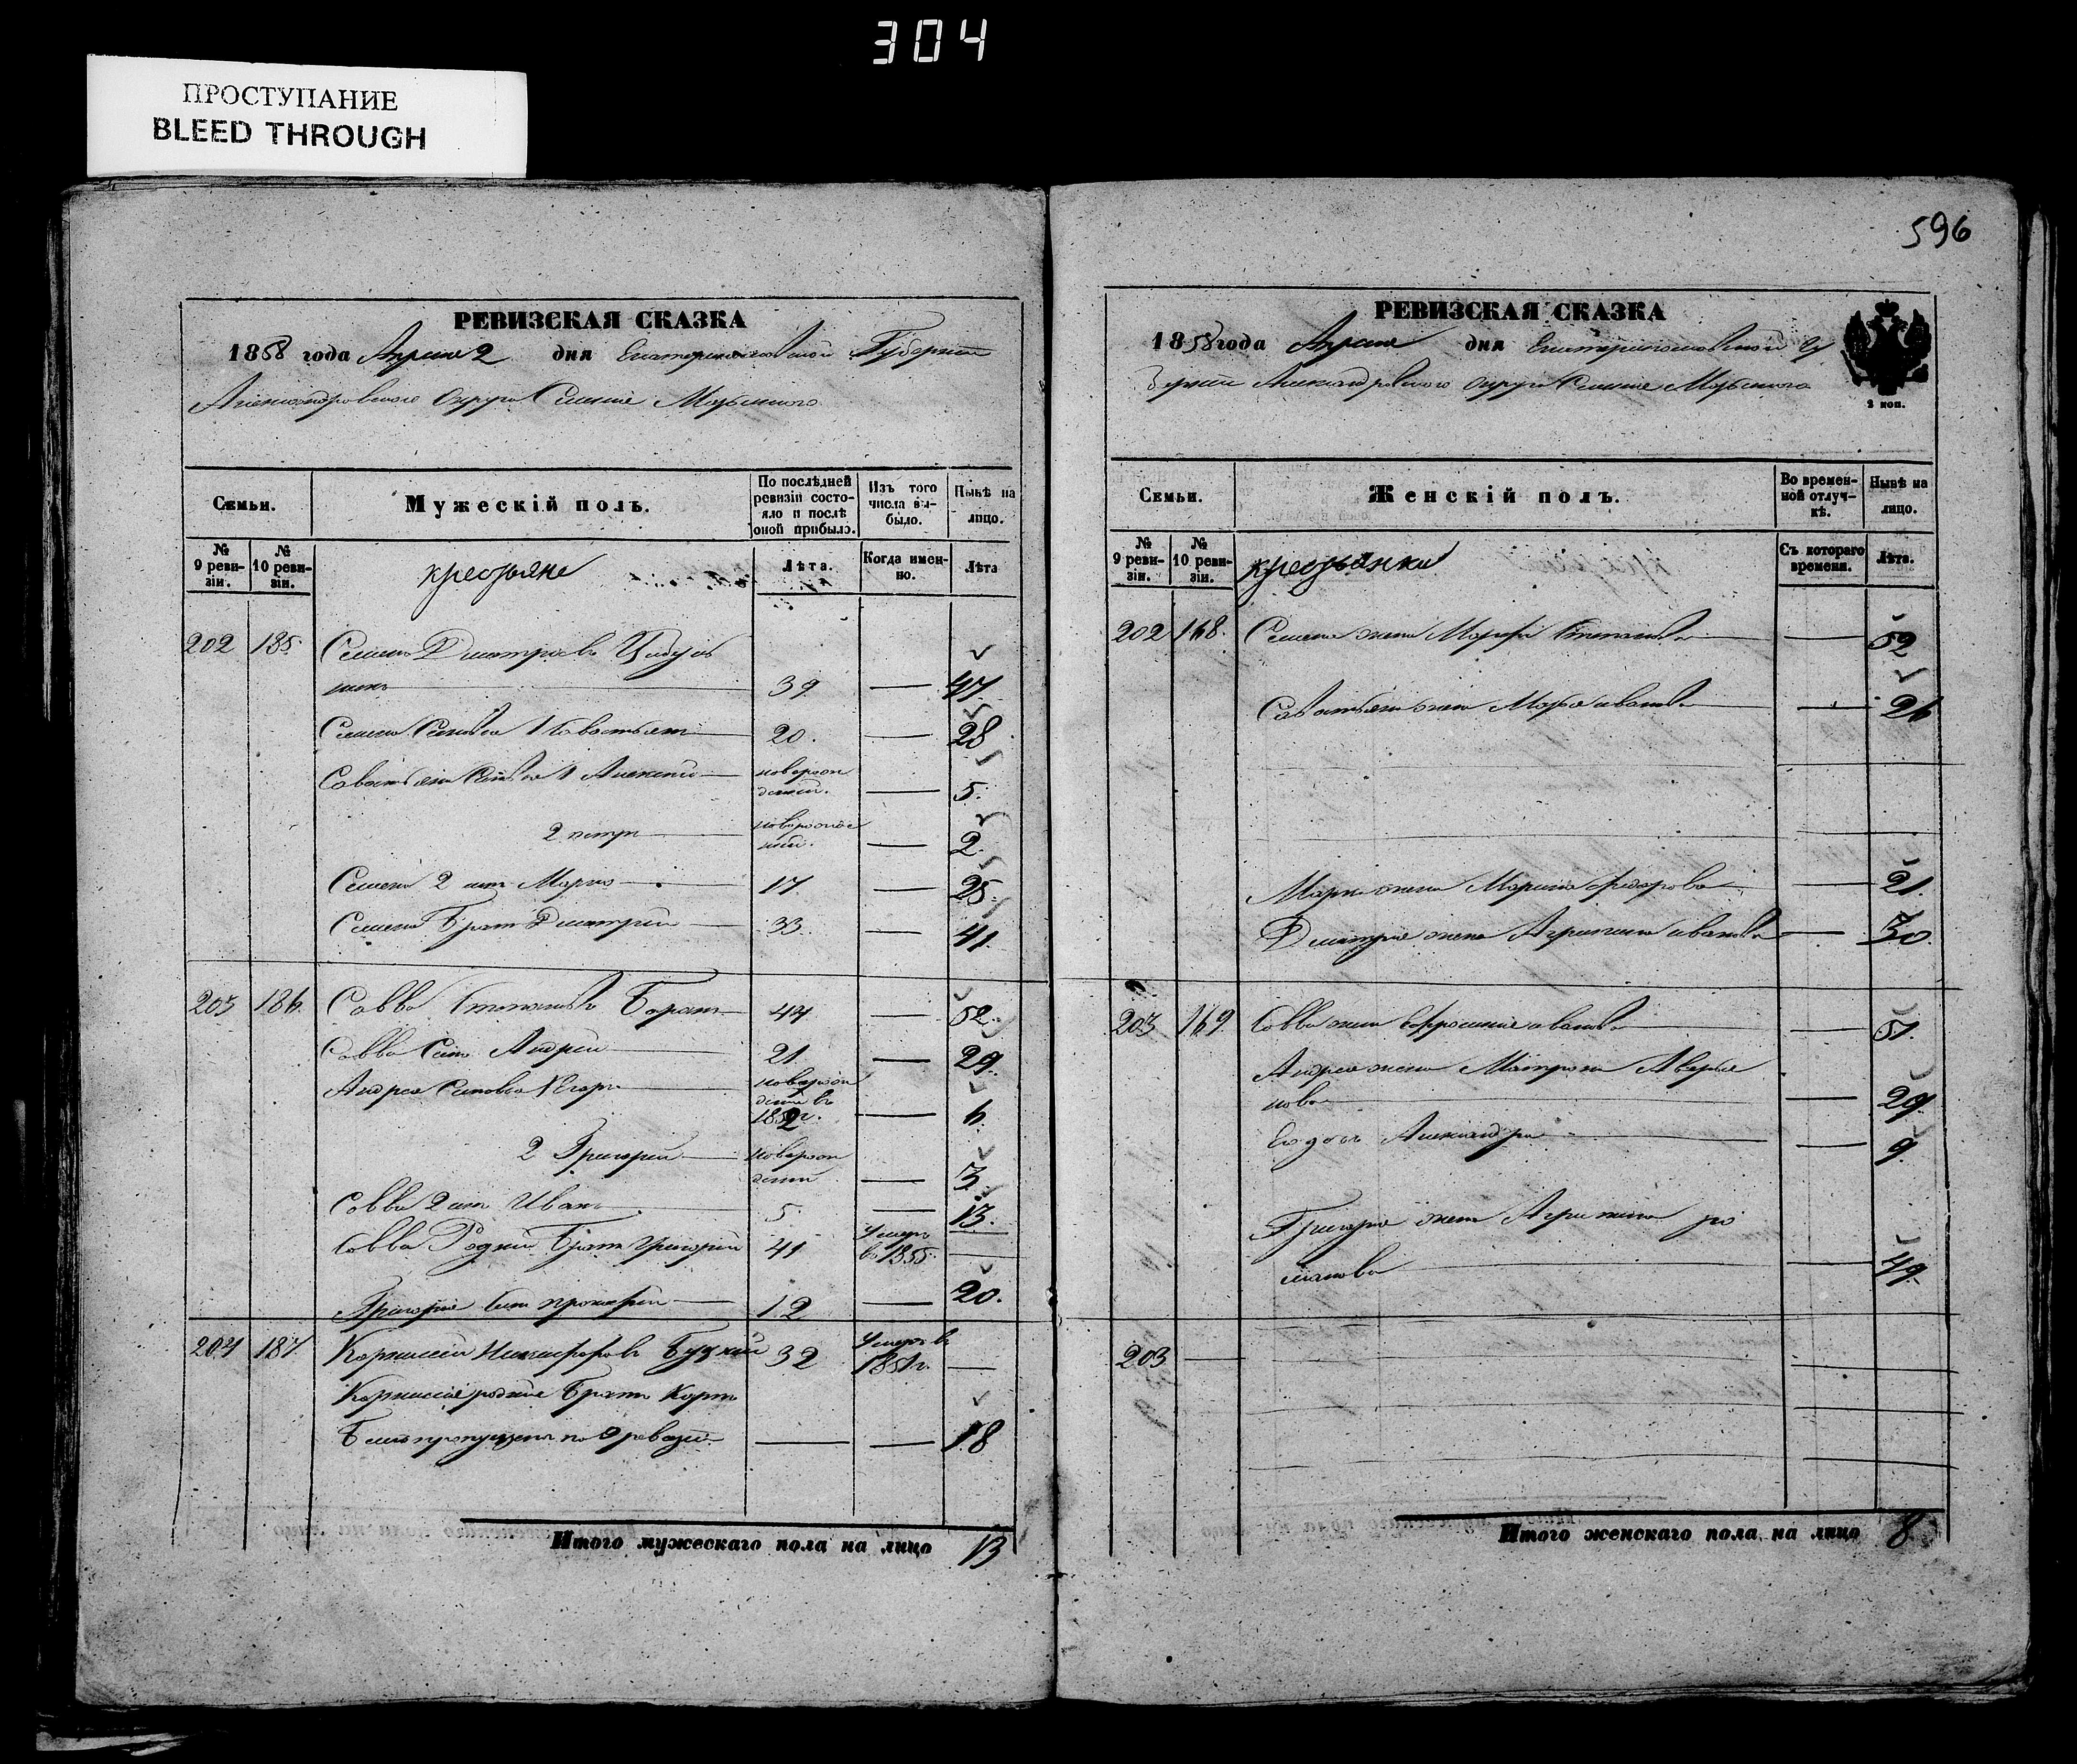 304
ПРОСТУПАНИЕ
BLEED THROUGH
РЕВИЗСКАЯ СКАЗКА
1858 года Апреля 2 дня Екатеринославской Губернии
Александровского Округа Селения
Семьи.
Мужескій полъ.
По послѣдней ревизіи состояло и послѣ оной прибыло.
Изъ того числа выбыло.
Нынѣ на лицо.
№ 9 ревизіи.
№ 10 ревизіи.
крестьяне
Лѣта.
Когда именно.
Лѣта
202 185 Семенъ Дмитріевъ
39 — 47
Семена Сыновья 1 Савостьянъ 20. — 28
Савостьяна Сыновья 1 Алексей новорож
денній. — 5.
2 петръ новорожде
ний. — 2.
Семена 2 сынъ Марко 17 — 25.
Семена Братъ Дмитрий 33. — 41.
203 186. Савва Степановъ 44 — 52.
Савва Сынъ Андрей 21. — 29.
Андрея Сыновья 1 Егоръ новорож
дений въ
1852г. — 6.
2 Григорий новорож
дений — 3.
Савва 2 сынъ Иванъ 5. — 13.
Савва Родний Братъ Григорий 41 Умеръ
въ 1855.
Григория Сынъ 12 — 20.
204 187. Корнилий Никифоровъ 32 Умеръ въ
1851г. —
Корнилия родние Братъ Карпъ
Билъ пропущенъ по 9 ревизии — — 18
Итого мужескаго пола на лицо 13
596
РЕВИЗСКАЯ СКАЗКА
1858 года Апреля дня Екатеринославской Гу
бернии Александровского округа Селения
2 коп.
Семьи.
Женскій полъ.
Во временной отлучкѣ.
Нынѣ на лицо.
№ 9 ревизіи.
№ 10 ревизіи.
крестьянки
Съ котораго времени.
Лѣта.
202 168. Семена жена Марфа Степанова — 52
Савостьяна жена Марья иванова — 26
Марка жена Марина федорова — 21.
Дмитрия жена Агрипина иванова — 30.
203 169. Савва жена Ефросиния иванова — 51.
Андрея жена Матрона Аверья
нова — 29.
Александра — 9.
Григория жена Агрипина ро
манова — 49.
203 —
Итого женскаго пола на лицо 8